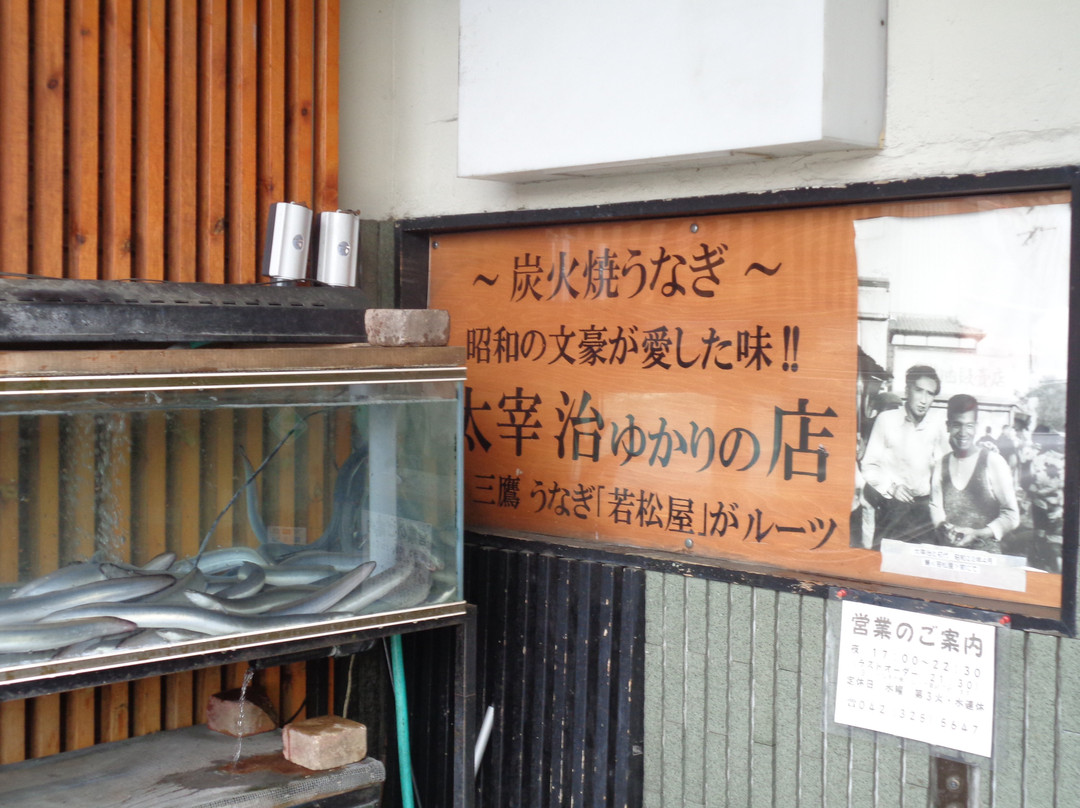 ～炭火焼うなぎ～
昭和の文豪が愛した味!!
太宰治ゆかりの店
三鷹 うなぎ「若松屋」がルーツ
営業のご案内
夜 17:00～22:30
ラストオーダー 21:30
定休日 水曜 第3火・水連休
☎042 325 5647